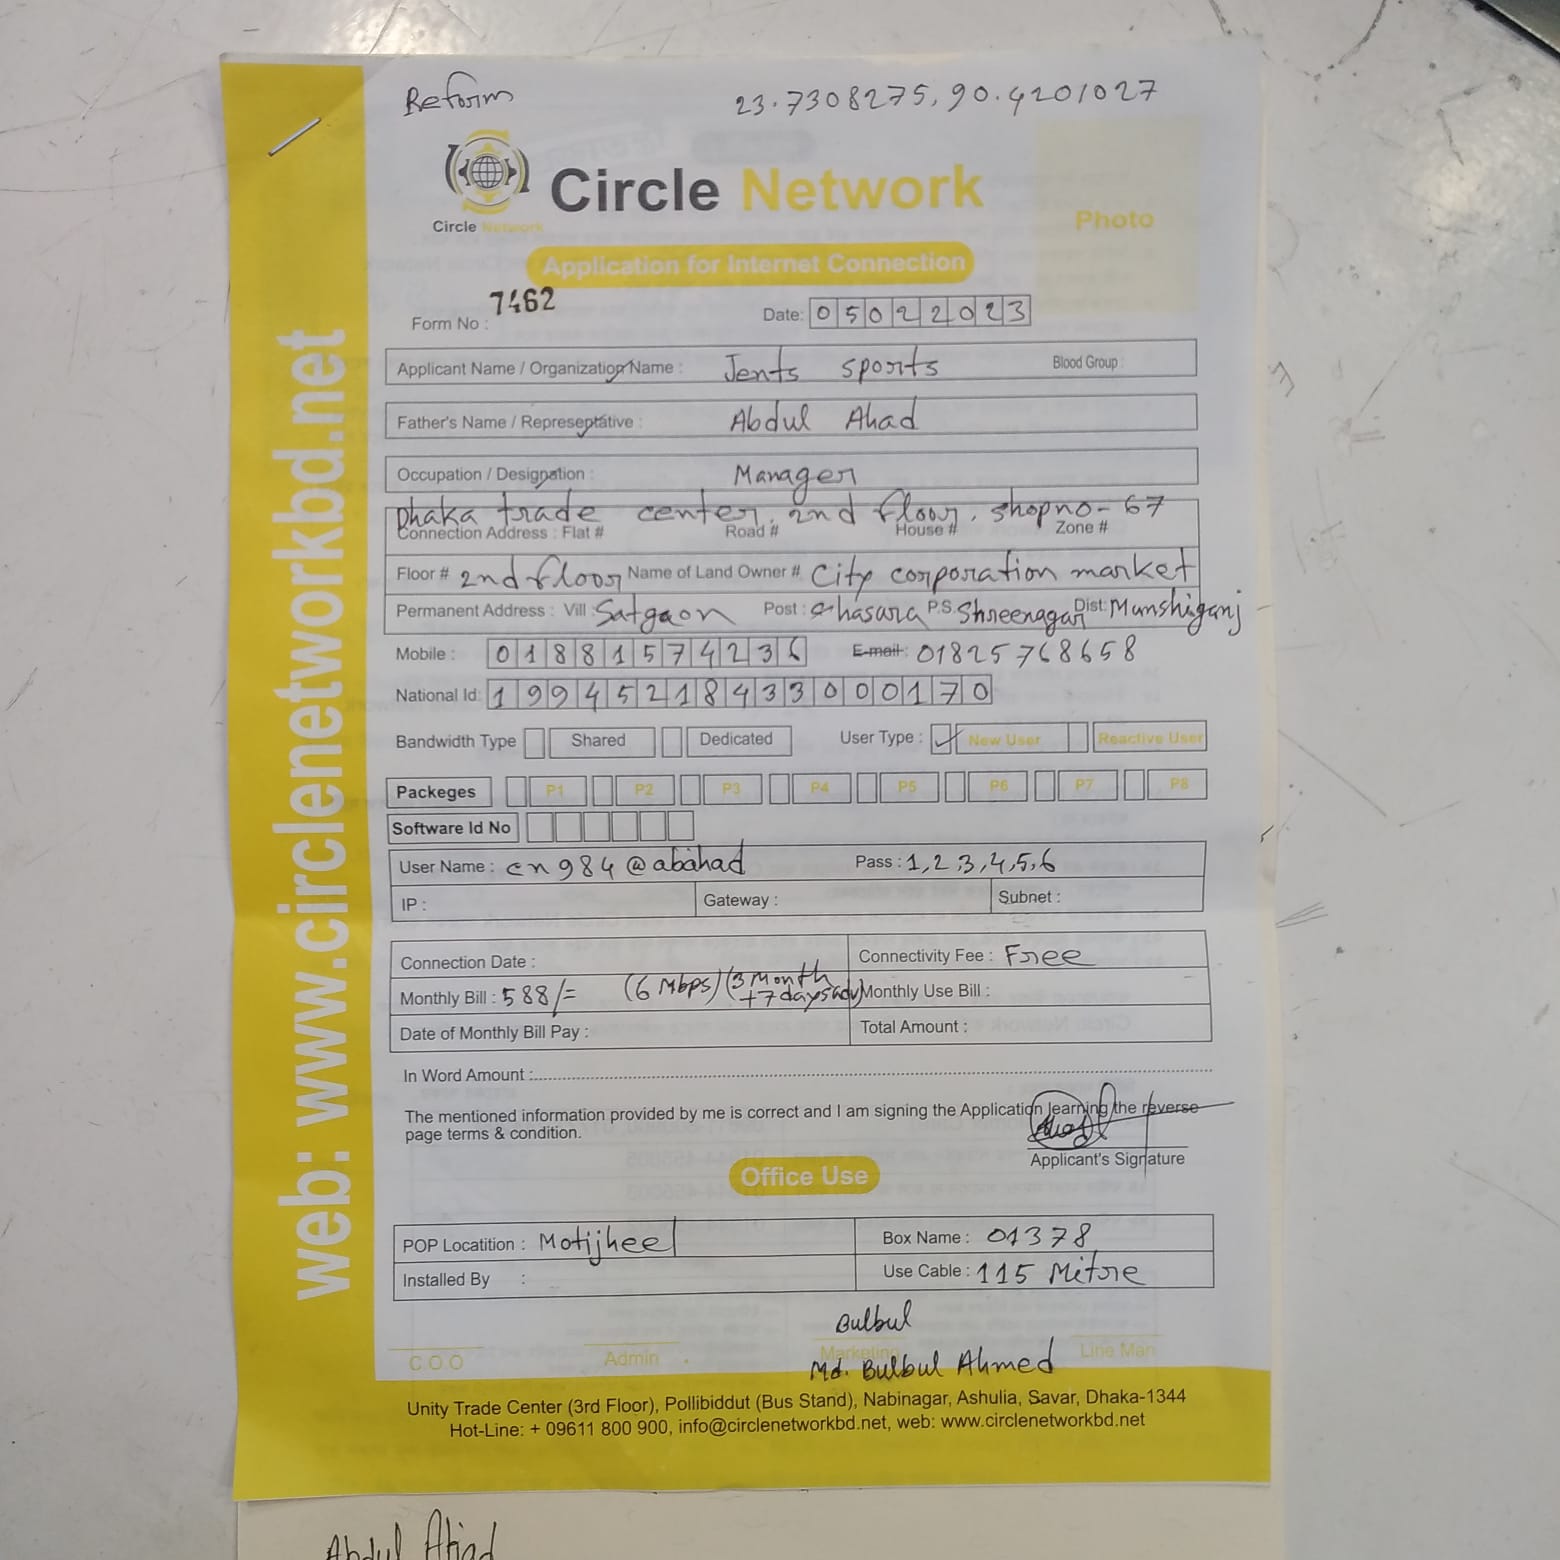 Reform 23.7308275, 90.4201027
Circle Network
Circle Network
Photo
Application for Internet Connection
Form No : 7462
Date: 05022023
Applicant Name / Organization Name : Jents sports Blood Group :
Father's Name / Representative : Abdul Ahad
Occupation / Designation : Manager
Dhaka trade center, 2nd floor, shop no- 67
Connection Address : Flat # Road # House # Zone #
Floor # 2nd floor Name of Land Owner # City corporation market
Permanent Address : Vill : Satgaon Post : P.S. Shreenagar Dist: Munshiganj
Mobile : 01881574236 E-mail: 01825768658
National Id: 19945218433000170
Bandwidth Type Shared Dedicated User Type : New User Reactive User
Packeges P1 P2 P3 P4 P5 P6 P7 P8
Software Id No
User Name : cn984@abahad Pass : 1,2,3,4,5,6
IP : Gateway : Subnet :
Connection Date : Connectivity Fee : Free
Monthly Bill : 588/= (6 Mbps) (3 Month +7 days adv) Monthly Use Bill :
Date of Monthly Bill Pay : Total Amount :
In Word Amount :
The mentioned information provided by me is correct and I am signing the Application learning the reverse
page terms & condition.
Applicant's Signature
Office Use
POP Locatition : Motijheel Box Name : 01378
Installed By : Use Cable : 115 Mitre
Bulbul
C O O Admin Marketing Line Man
Md. Bulbul Ahmed
Unity Trade Center (3rd Floor), Pollibiddut (Bus Stand), Nabinagar, Ashulia, Savar, Dhaka-1344
Hot-Line: + 09611 800 900, info@circlenetworkbd.net, web: www.circlenetworkbd.net
web: www.circlenetworkbd.net
Abdul Ahad